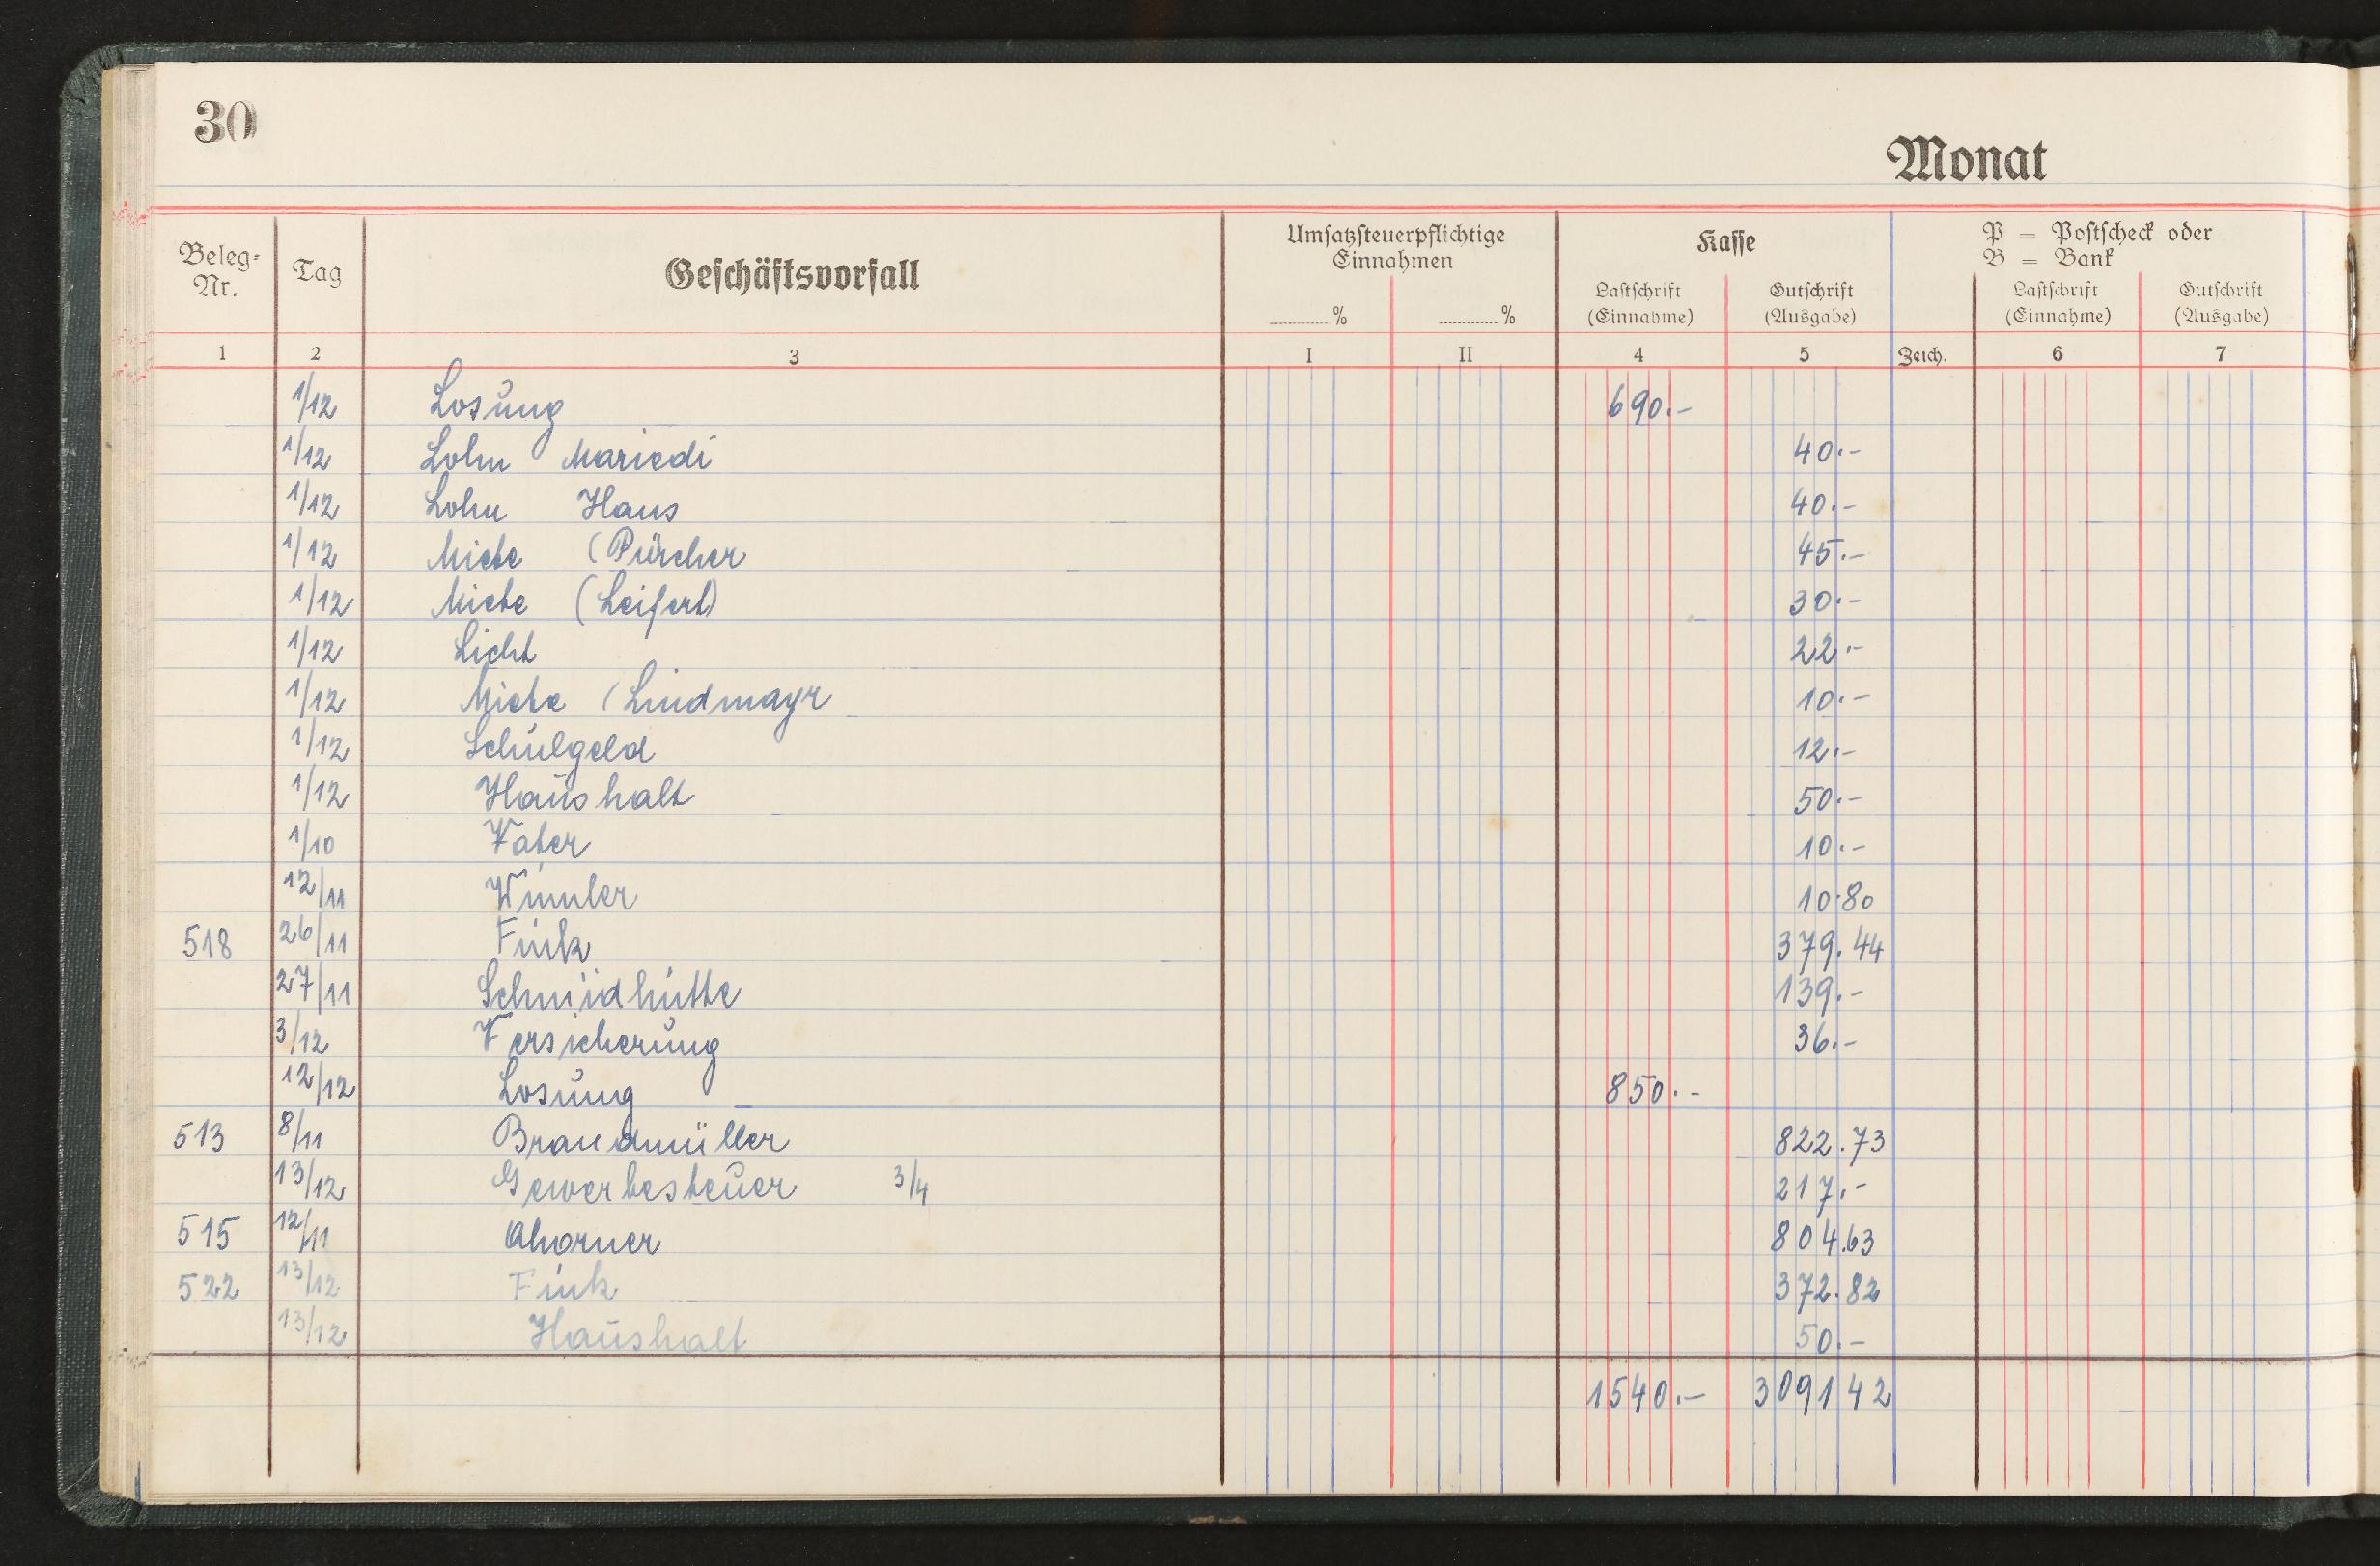 30
Monat
Beleg-Nr. Tag Geschäftsvorfall Umsatzsteuerpflichtige Einnahmen Kasse P = Postscheck oder B = Bank
% % Lastschrift (Einnahme) Gutschrift (Ausgabe) Lastschrift (Einnahme) Gutschrift (Ausgabe)
1 2 3 I II 4 5 Zeich. 6 7
1/12 Losung 690.-
1/12 Lohn Mariedi 40.-
1/12 Lohn Haus 40.-
1/12 Miete (Pürcher 45.-
1/12 Miete (Leifert) 30.-
1/12 Licht 22.-
1/12 Miete (Lindmayr 10.-
1/12 Schulgeld 12.-
1/12 Haushalt 50.-
1/10 Vater 10.-
12/11 Wimler 10.80
518 26/11 Fink 379.44
27/11 Schmidhütte 139.-
3/12 Versicherung 36.-
12/12 Losung 850.-
513 8/11 Brandmüller 822.73
13/12 Gewerbesteuer 3/4 217.-
515 12/11 Ahorner 804.63
522 13/12 Fink 372.82
13/12 Haushalt 50.-
1540.- 3091 42